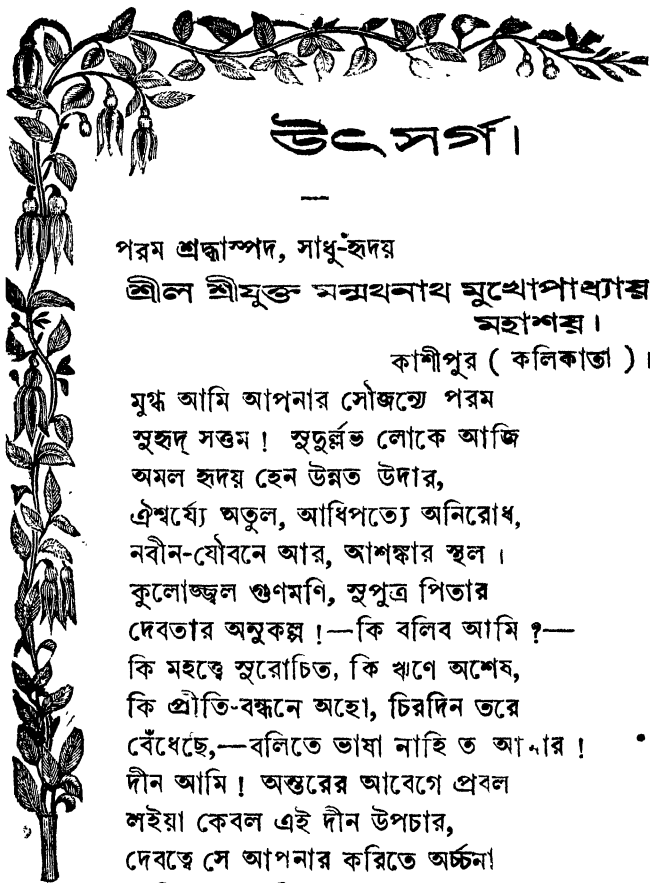 উৎসর্গ।
পরম শ্রদ্ধাস্পদ, সাধু-হৃদয়
শ্রীল শ্রীযুক্ত মন্মথনাথ মুখোপাধ্যায়
মহাশয়।
কাশীপুর ( কলিকাতা )।
মুগ্ধ আমি আপনার সৌজন্যে পরম
সুহৃদ্ সত্তম ! সুদুর্ল্লভ লোকে আজি
অমল হৃদয় হেন উন্নত উদার,
ঐশ্বর্য্যে অতুল, আধিপত্যে অনিরোধ,
নবীন-যৌবনে আর, আশঙ্কার স্থল।
কুলোজ্জ্বল গুণমণি, সুপুত্র পিতার
দেবতার অনুকল্প !—কি বলিব আমি ?—
কি মহত্ত্বে সুরোচিত, কি ঋণে অশেষ,
কি প্রীতি-বন্ধনে অহো, চিরদিন তরে
বেঁধেছে,—বলিতে ভাষা নাহি ত !
দীন আমি ! অন্তরের আবেগে প্রবল
লইয়া কেবল এই দীন উপচার,
দেবত্বে সে আপনার করিতে অর্চ্চনা